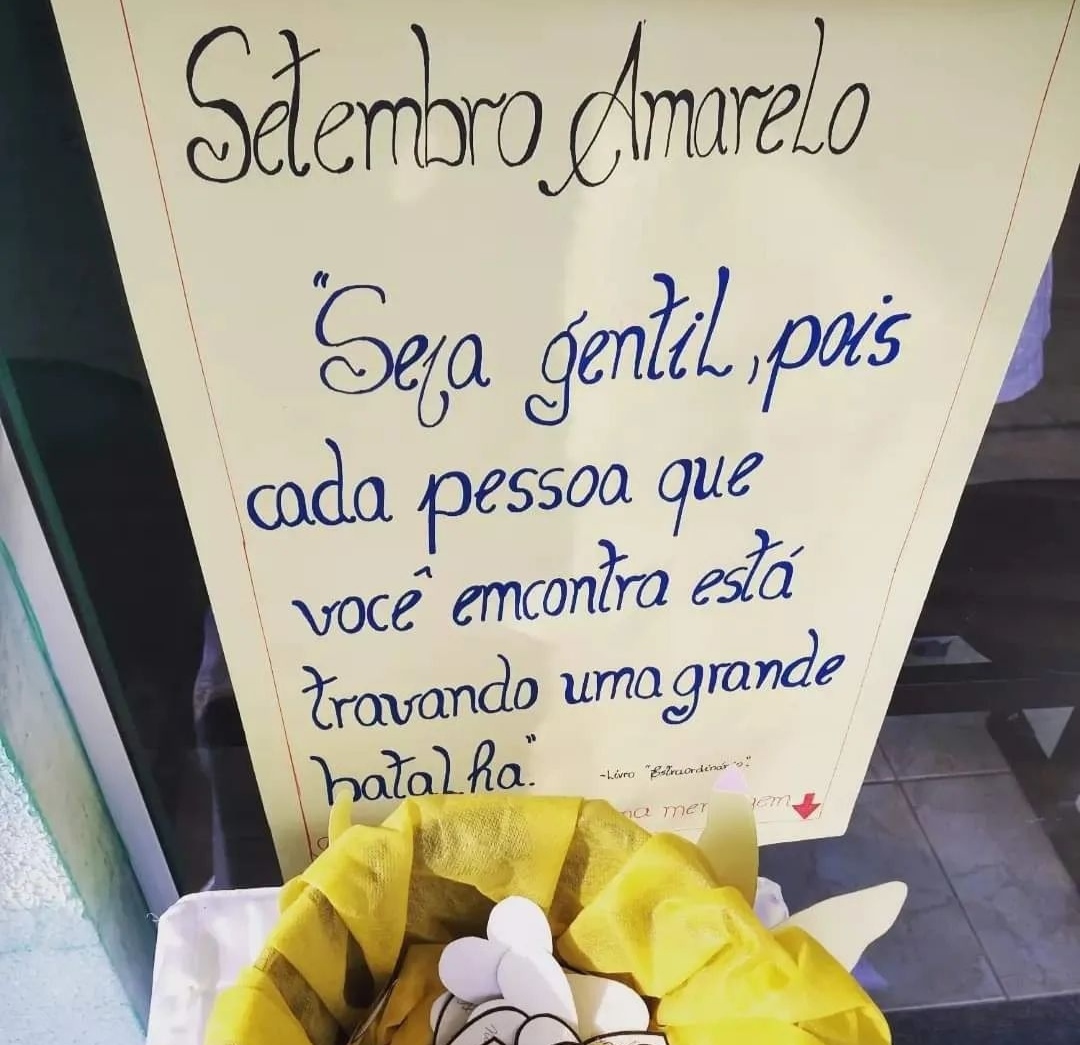 Setembro Amarelo
"Seja gentil, pois
cada pessoa que
você emcontra está
travando uma grande
batalha."
-Livro "Extraordinário".
mensagem